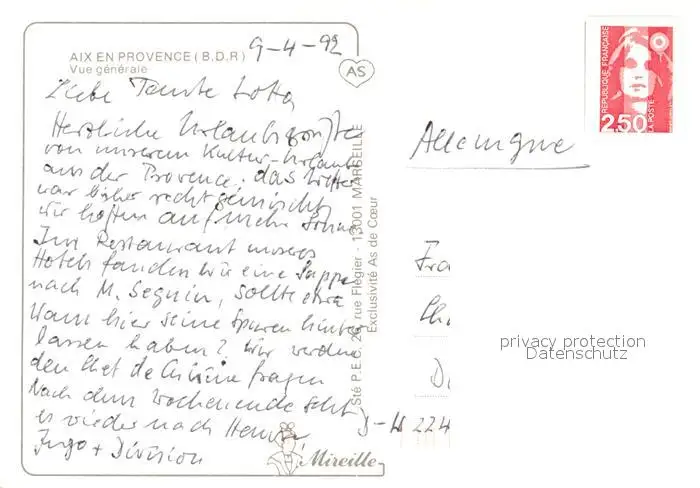 AIX EN PROVENCE (B.D.R)
Vue générale
9-4-92
AS
Liebe Tante Lotta
Herzliche Urlaubsgrüße
von unserem Kultur-Urlaub
aus der Provence. Das Wetter
war bisher recht gemischt,
wir hoffen auf mehr Sonne.
Im Restaurant unseres
Hotels fanden wir eine Suppe
nach M. Seguin, sollte etwa
hier seine Spuren hinter
lassen haben? Wir werden
den Chef de Cuisine fragen
Nach dem Wochenende geht
es wieder nach Hause,
Ingo +
Mireille
Sté P.E.C. 26, rue Flégier - 13001 MARSEILLE
Exclusivité As de Cœur
REPUBLIQUE FRANÇAISE
2,50
LA POSTE
Allemagne
Fra
D-W 224
privacy protection
Datenschutz